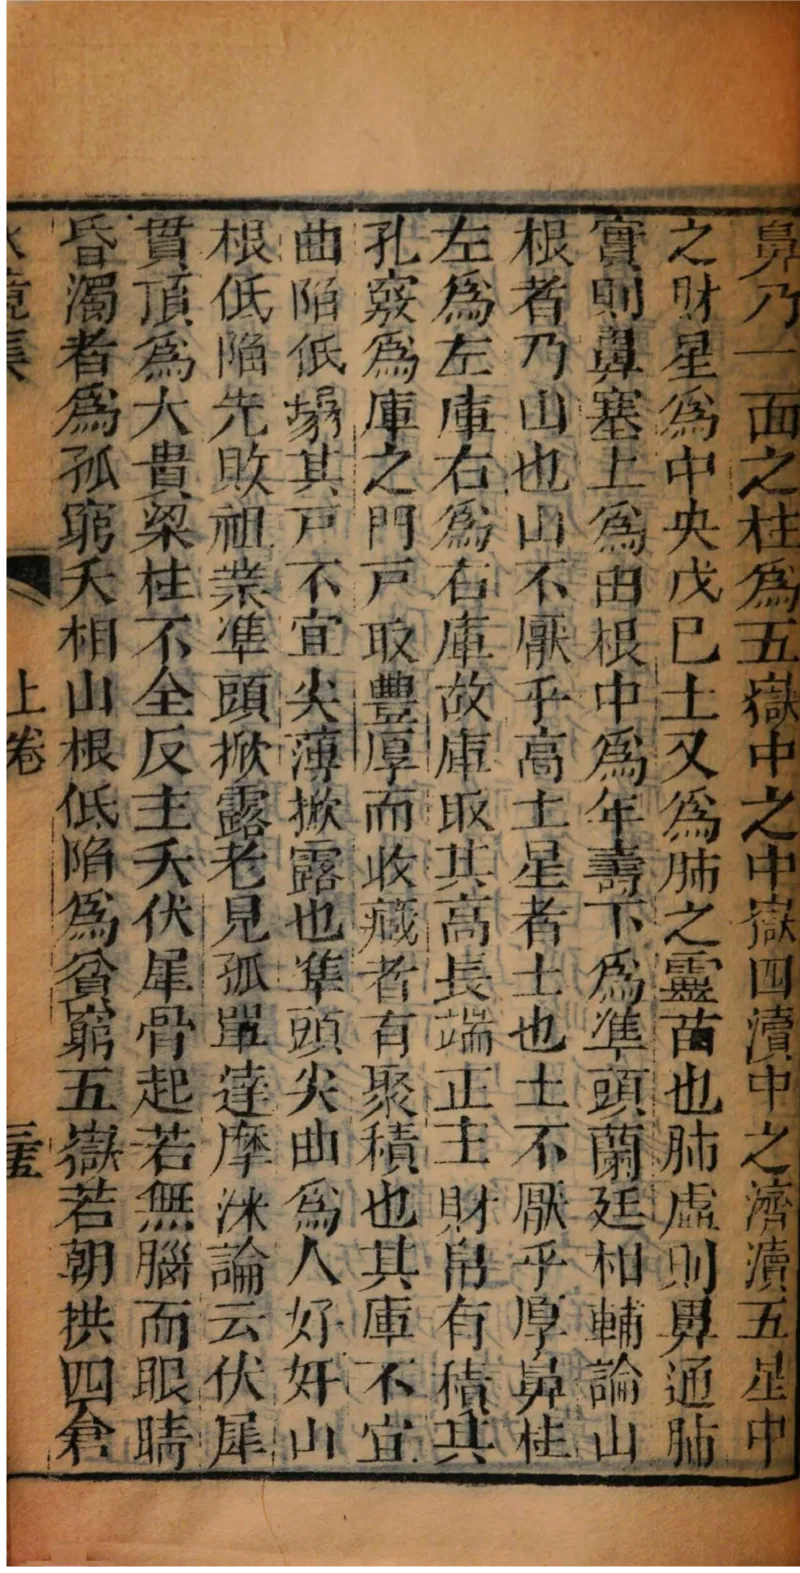 鼻乃一面之柱爲五嶽中之中嶽四瀆中之濟瀆五星中
之財星爲中央戊巳土又爲肺之靈苗也肺虛則鼻通肺
實則鼻塞上爲由根中爲年壽下爲準頭蘭廷相輔論山
根者乃山也山不厭乎高土星者土也土不厭乎厚鼻柱
左爲左庫右爲右庫故庫取其高長端正主財帛有積其
孔竅爲庫之門戸取豐厚而收藏者有聚積也其庫不宜
曲陷低塌其戸不宜尖薄掀露也準頭尖曲爲人好奸山
根低陷先敗祖業準頭掀露老見孤單達摩洣論云伏犀
貫頂爲大貴梁柱不全反主夭伏犀骨起若無腦而眼睛
昏濁者爲孤窮夭相山根低陷爲貧窮五嶽若朝拱四倉
水鏡集 上卷 三五